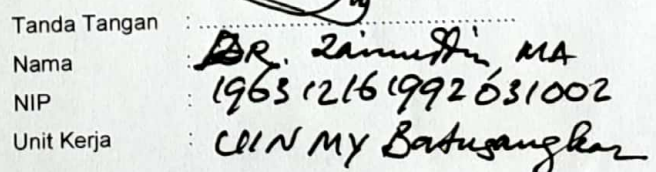 Tanda Tangan :
Nama : DR. Zainuddin, MA
NIP : 196312161992031002
Unit Kerja : UIN MY Batusangkar